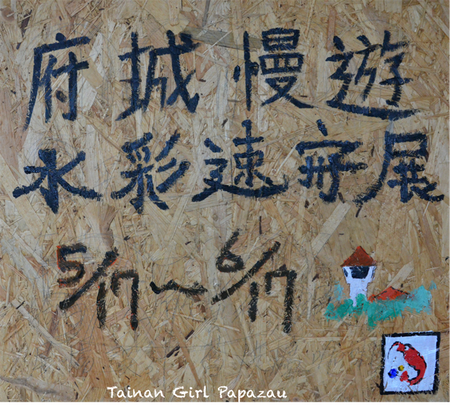 府城慢遊
水彩速寫展
5/17~6/17
Tainan Girl Papazau